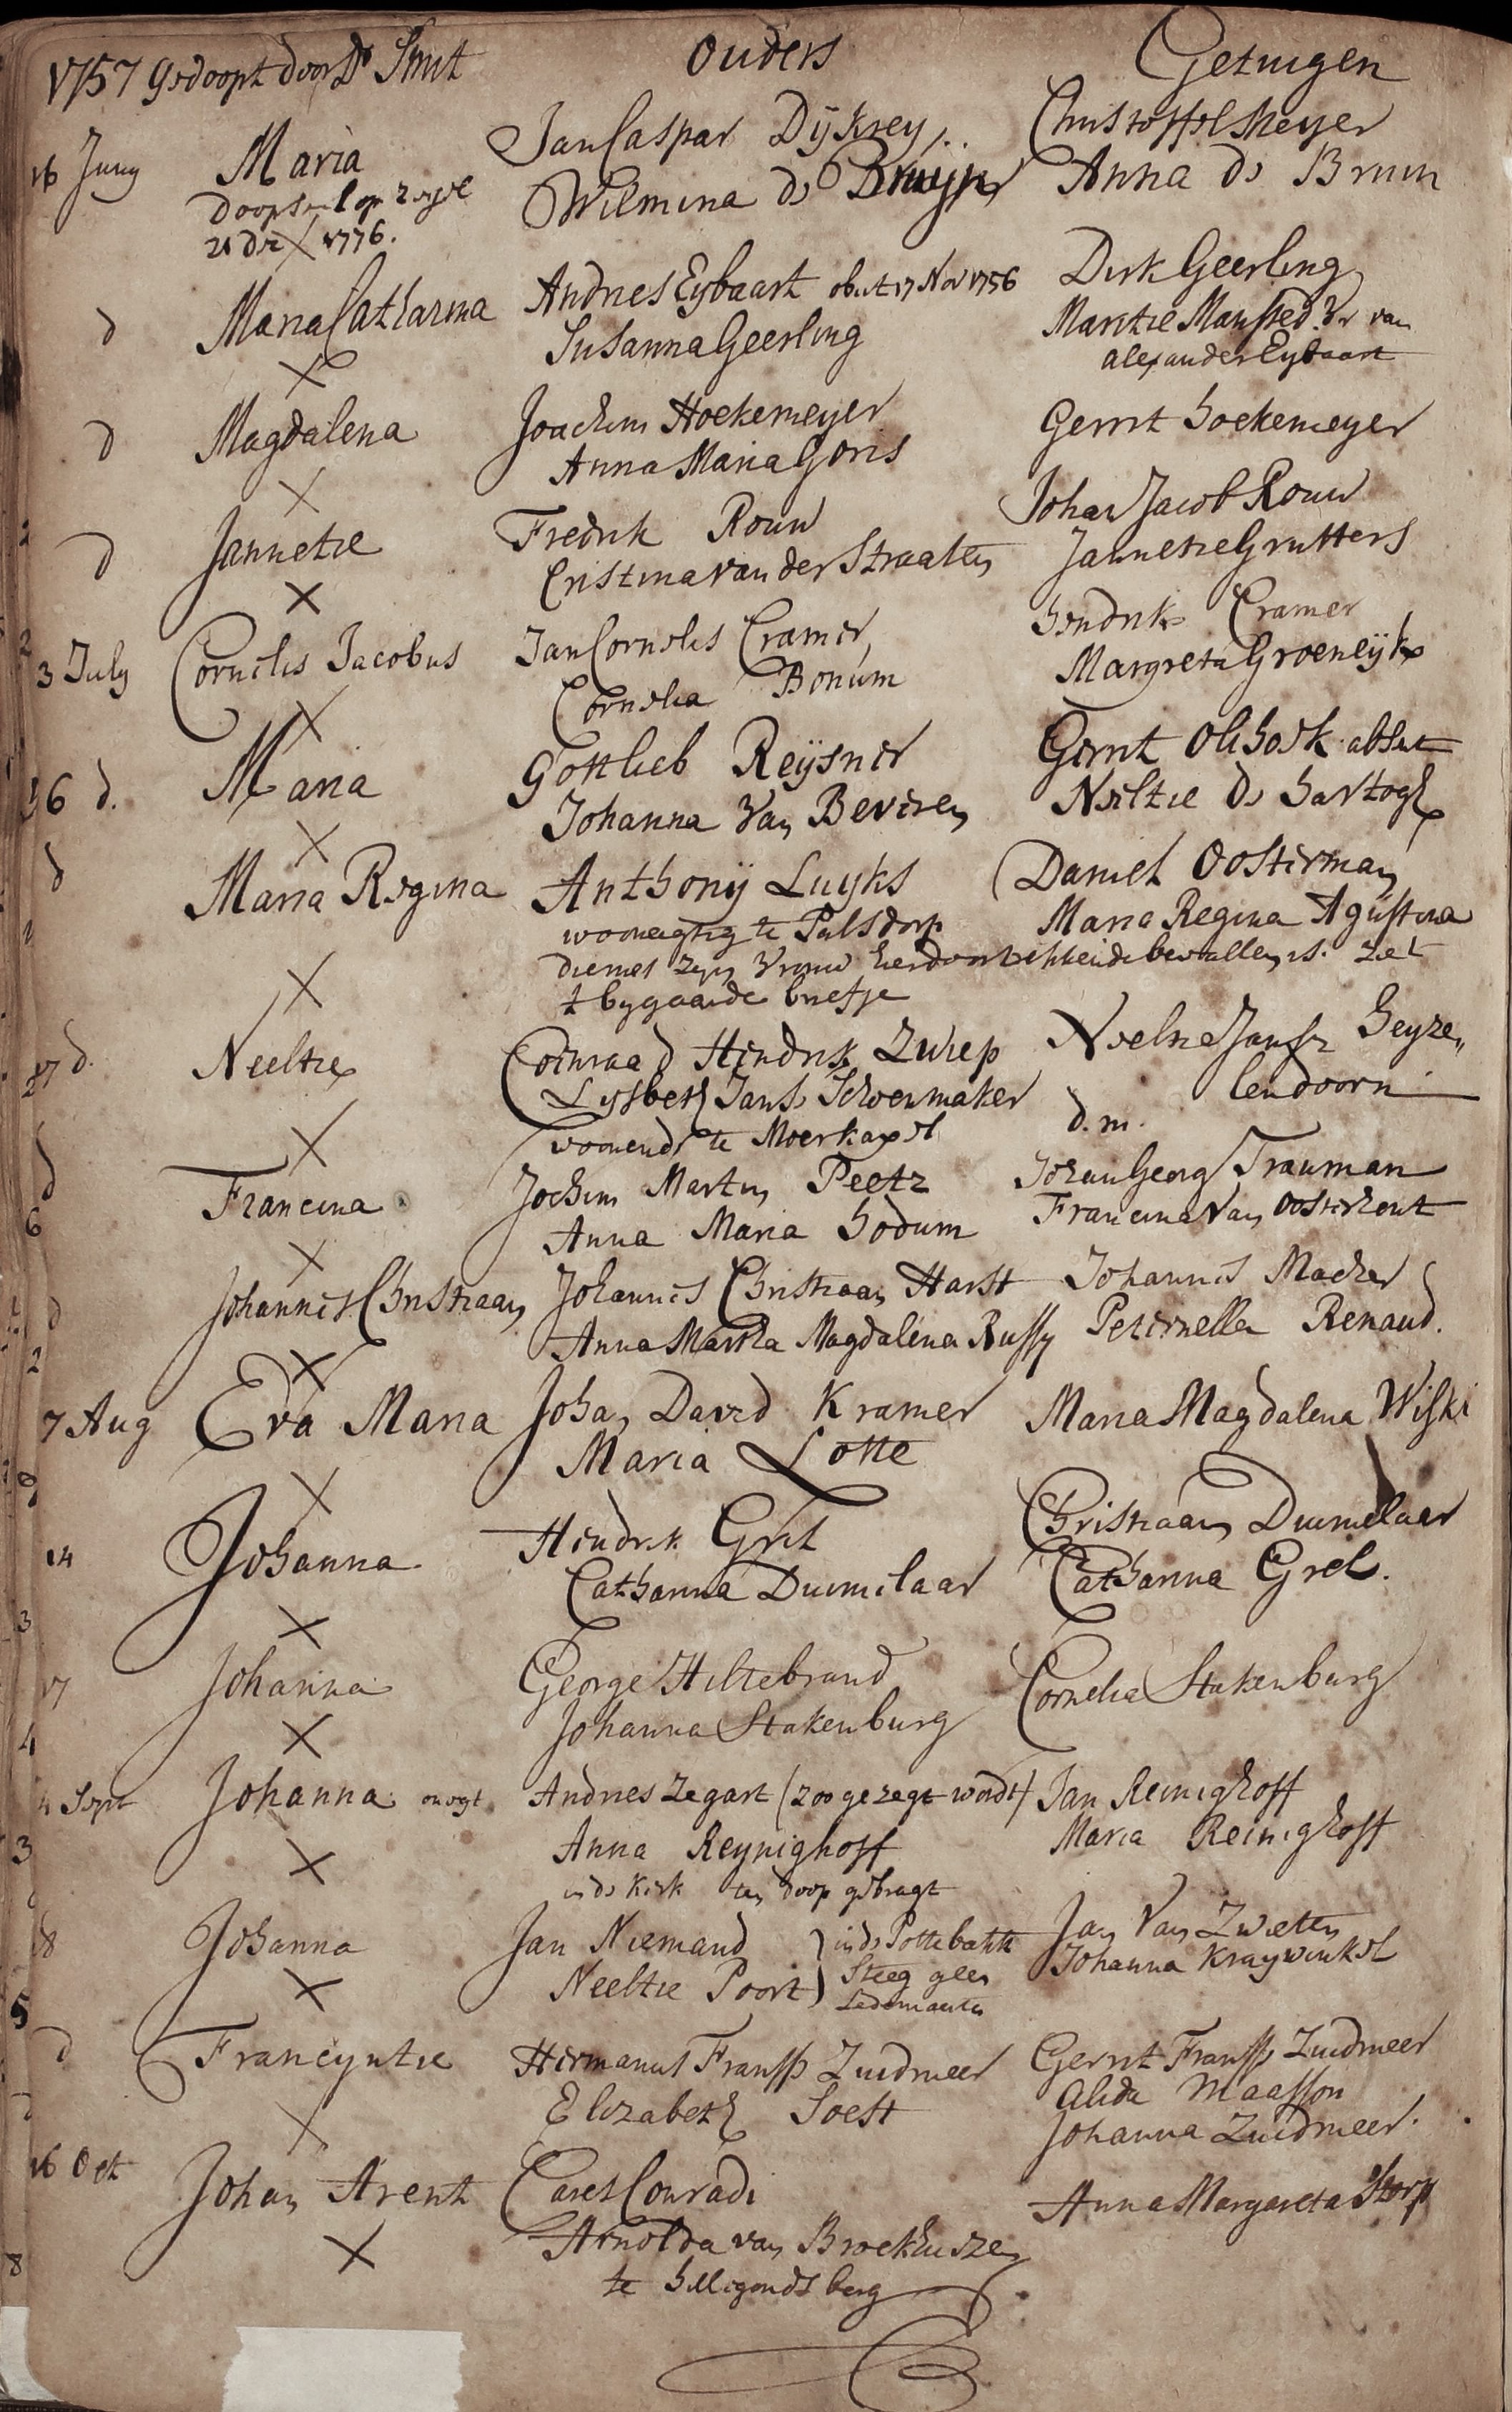 1757 Gedoopt door Ds Smit
Ouders
Getuigen
16 Juny Maria
Doopceel op zegel
21 dec 1776.
Jan Caspar Dijkrey,
Wilmina de Bruijn
Christoffel Meyer
Anna de Bruin
d Maria Catharina
Andries Eybaart obiit 17 Nov 1756
Susanna Geerling
Dirk Geerling
Maritie Mansfed. Vr van
Alexander Eybaart
d Magdalena
Joachim Hoekemeyer
Anna Maria Goris
Gerrit Hoekemeyer
d Jannetie
Fredrik Rouw
Cristina van der Straaten
Johan Jacob Rouw
Jannetie Grutters
3 July Cornelis Jacobus
Jan Cornelis Cramer,
Cornelia Bonum
Hendrik Cramer
Margreta Groeneijk
d. Maria
Gottlieb Reijsner
Johanna Van Beveren
Gerrit Olihoek absent
Neeltie de Hartogh
d Maria Regina
Anthonij Luyks
woonagtig te Palsdorp
die met zijn Vrouw hier bevallen is. Ziet
t bygaande briefje
Daniel Oosterman
Maria Regina Agustina
17 d. Neeltie
Coenraad Hendrik Zwiep
Lijsbeth Jans Schoenmaker
woonende te Moerkapel
Neeltie Jansz Heyze„
lendoorn
d. m.
d Francina
Jochim Martin Peetz
Anna Maria Hodum
Johan Georg Trauman
Francina Van Oosterhout
d Johannes Christiaan
Johannes Christiaan Harst
Anna Martha Magdalena Russy
Johannes Macher
Peternella Renaud.
7 Aug Eva Maria
Johan David Kramer
Maria Lotte
Maria Magdalena Wiski
14 Johanna
Hendrik Grel
Catharina Duimelaar
Christiaan Duimelaar
Catharina Grel.
17 Johanna
George Hiltebrand
Johanna Stakenburg
Cornelia Stakenburg
4 Sept Johanna onegt
Andries Zegart (zoo gezegt wordt)
Anna Reynighoff
in de Kerk ten doop gebragt
Jan Reinighoff
Maria Reinighoff
18 Johanna
Jan Niemand
Neeltie Poort
in de Pottebakk
Steeg geen
Ledemaaten
Jan Van Zwieten
Johanna Kraywinkel
d Francyntie
Hermanus Franss Zuidmeer
Elizabeth Soest
Gerrit Franss Zuidmeer
Alida Maasson
Johanna Zuidmeer.
16 Oct Johan Arent
Carel Conradi
Arnolda van Broekhuizen
te Hilligondsberg
Anna Margareta Storp